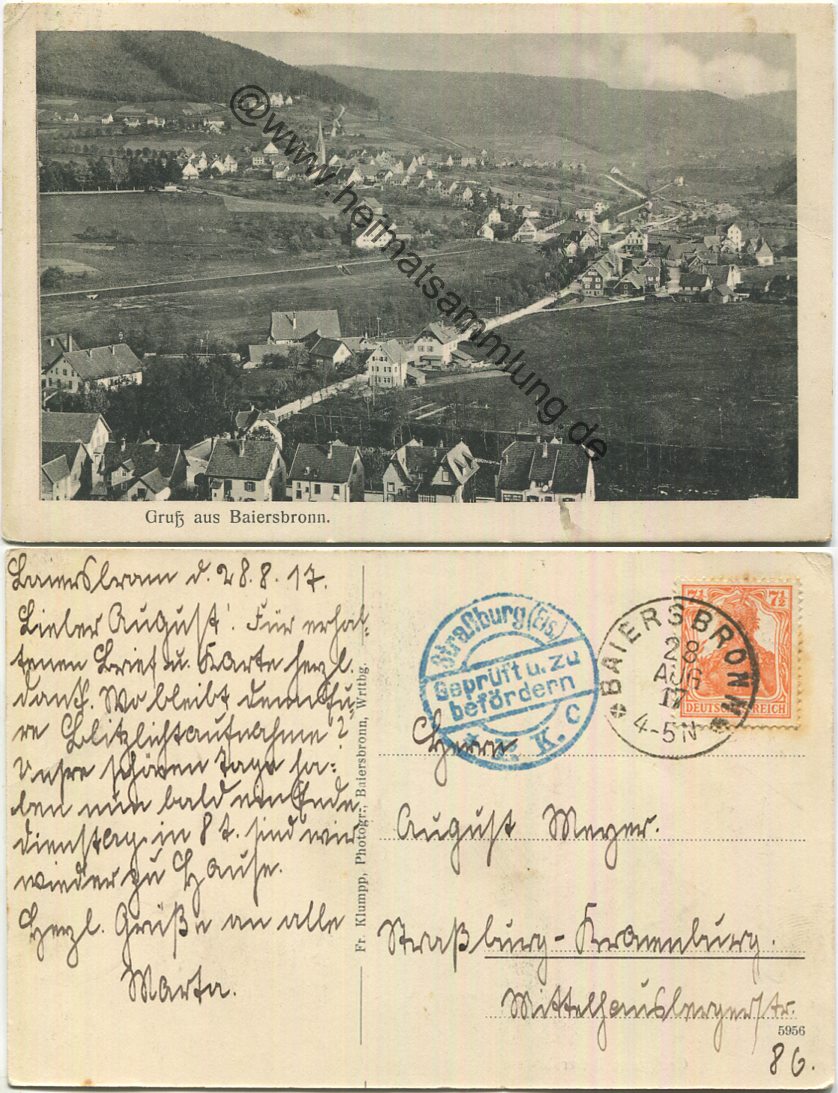 @www.heimatsammlung.de
Gruß aus Baiersbronn.
Baiersbronn d. 28.8.17.
Lieber August! Für erhal-
tenen Brief u. Karte herzl.
Dank. Wo bleibt denn Eu-
re Blitzlichtaufnahme?
Unsre schönen Tage ha-
ben nun bald ein Ende
Dienstag in 8 t. sind wir
wieder zu Hause.
Herzl. Grüße an alle
Marta.
Fr. Klumpp, Photogr., Baiersbronn, Wrttbg.
Straßburg (Els.)
Geprüft u. zu
befördern
K. c
BAIERSBRONN
28
AUG
17
4-5N
7½ 7½
DEUTSCHES REICH
Herrn
August Meyer.
Straßburg-Kronenburg.
Mittelhausbergerstr.
5956
86.